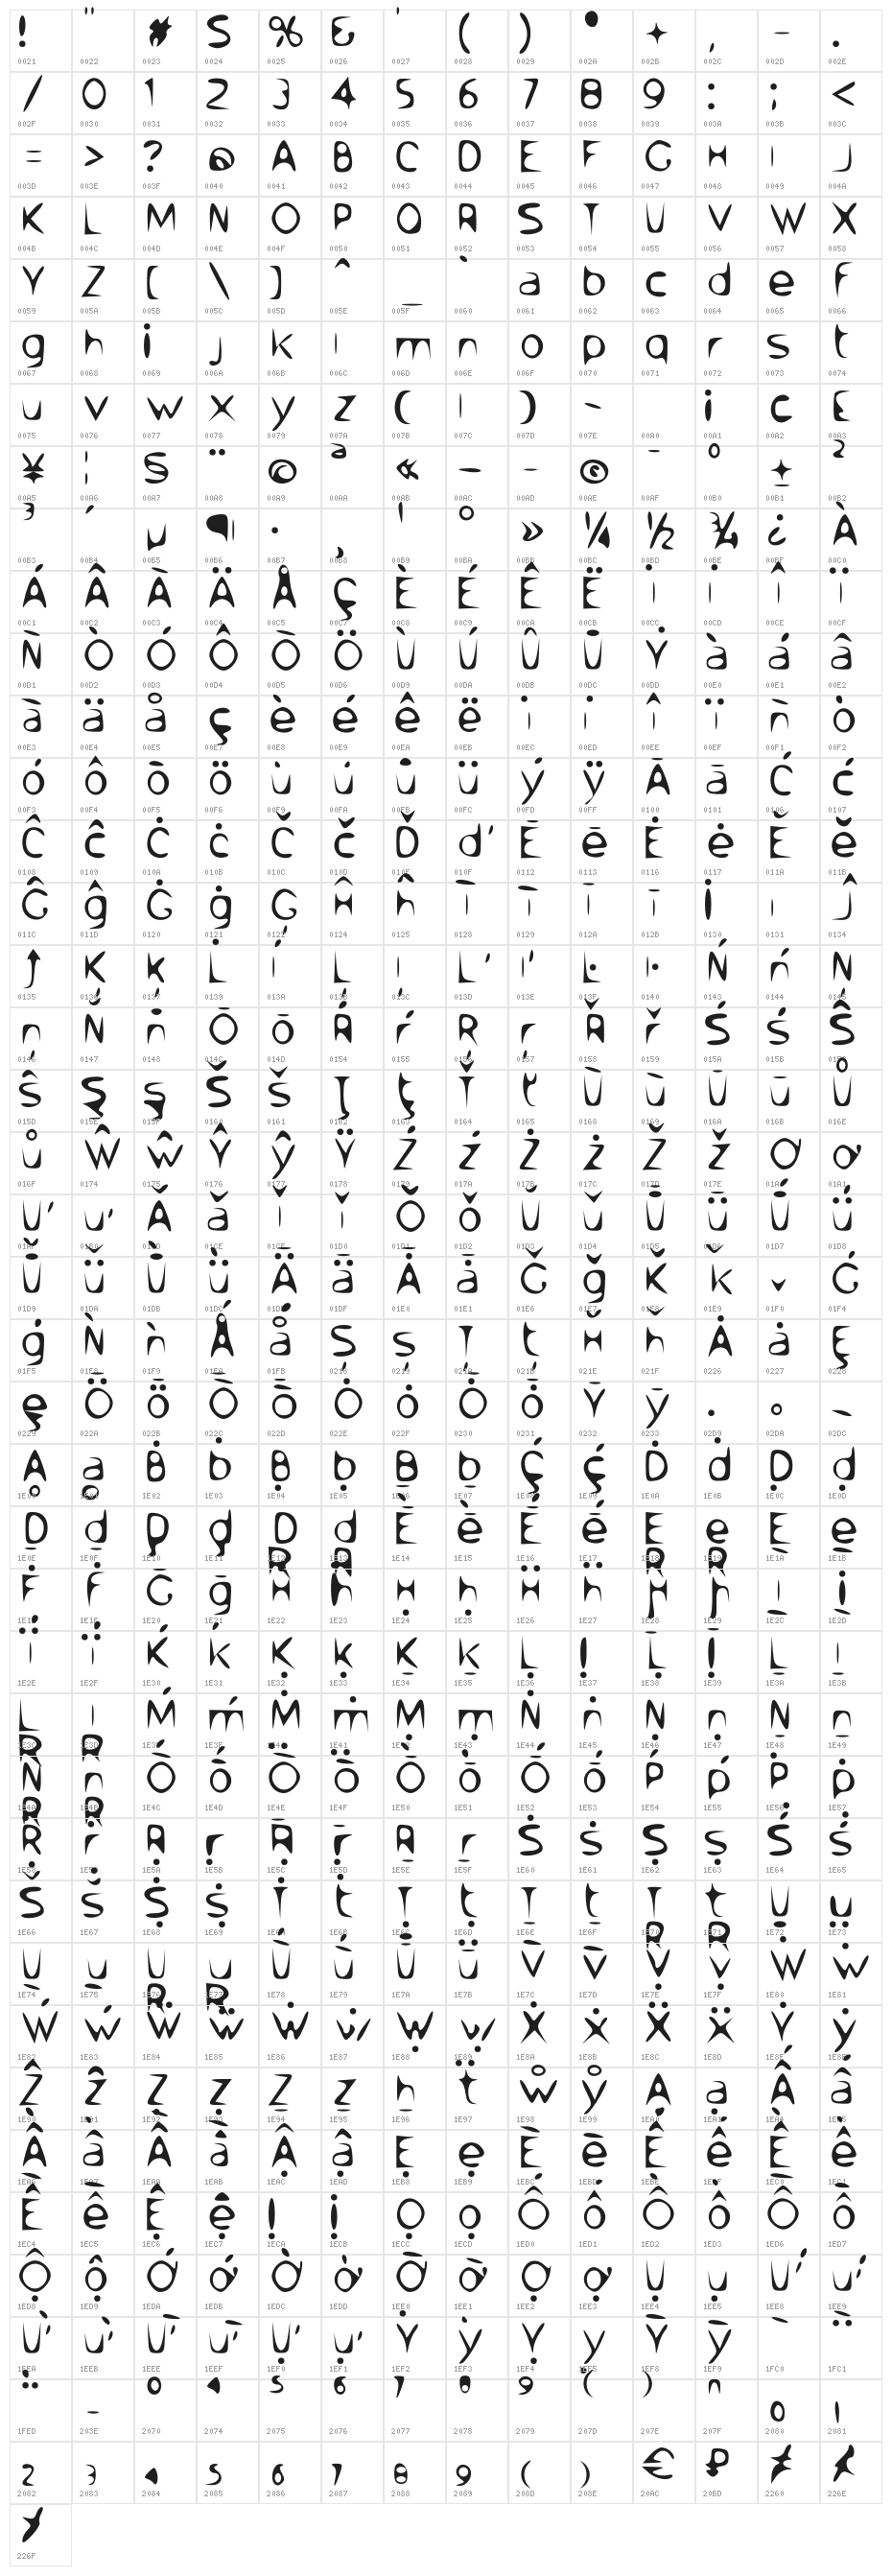 ! " # $ % & ' ( ) * + , - .
0021 0022 0023 0024 0025 0026 0027 0028 0029 002A 002B 002C 002D 002E
/ 0 1 2 3 4 5 6 7 8 9 : ; <
002F 0030 0031 0032 0033 0034 0035 0036 0037 0038 0039 003A 003B 003C
= > ? @ A B C D E F G H I J
003D 003E 003F 0040 0041 0042 0043 0044 0045 0046 0047 0048 0049 004A
K L M N O P Q R S T U V W X
004B 004C 004D 004E 004F 0050 0051 0052 0053 0054 0055 0056 0057 0058
Y Z [ \ ] ^ _ ` a b c d e f
0059 005A 005B 005C 005D 005E 005F 0060 0061 0062 0063 0064 0065 0066
g h i j k l m n o p q r s t
0067 0068 0069 006A 006B 006C 006D 006E 006F 0070 0071 0072 0073 0074
u v w x y z { | } ~ ¡ ¢ £
0075 0076 0077 0078 0079 007A 007B 007C 007D 007E 00A0 00A1 00A2 00A3
¥ ¦ § ¨ © ª « ¬ ® ¯ ° ± ²
00A5 00A6 00A7 00A8 00A9 00AA 00AB 00AC 00AD 00AE 00AF 00B0 00B1 00B2
³ ´ µ ¶ · ¸ ¹ º » ¼ ½ ¾ ¿ À
00B3 00B4 00B5 00B6 00B7 00B8 00B9 00BA 00BB 00BC 00BD 00BE 00BF 00C0
Á Â Ã Ä Å Ç È É Ê Ë Ì Í Î Ï
00C1 00C2 00C3 00C4 00C5 00C7 00C8 00C9 00CA 00CB 00CC 00CD 00CE 00CF
Ñ Ò Ó Ô Õ Ö Ù Ú Û Ü Ý à á â
00D1 00D2 00D3 00D4 00D5 00D6 00D9 00DA 00DB 00DC 00DD 00E0 00E1 00E2
ã ä å ç è é ê ë ì í î ï ñ ò
00E3 00E4 00E5 00E7 00E8 00E9 00EA 00EB 00EC 00ED 00EE 00EF 00F1 00F2
ó ô õ ö ù ú û ü ý ÿ Ā ā Ć ć
00F3 00F4 00F5 00F6 00F9 00FA 00FB 00FC 00FD 00FF 0100 0101 0106 0107
Ĉ ĉ Ċ ċ Č č Ď ď Ē ē Ė ė Ě ě
0108 0109 010A 010B 010C 010D 010E 010F 0112 0113 0116 0117 011A 011B
Ĝ ĝ Ġ ġ Ģ Ĥ ĥ Ĩ ĩ Ī ī İ ı Ĵ
011C 011D 0120 0121 0122 0124 0125 0128 0129 012A 012B 0130 0131 0134
ĵ Ķ ķ Ĺ ĺ Ļ ļ Ľ ľ Ŀ ŀ Ń ń Ņ
0135 0136 0137 0139 013A 013B 013C 013D 013E 013F 0140 0143 0144 0145
ņ Ň ň Ō ō Ŕ ŕ Ŗ ŗ Ř ř Ś ś Ŝ
0146 0147 0148 014C 014D 0154 0155 0156 0157 0158 0159 015A 015B 015C
ŝ Ş ş Š š Ţ ţ Ť ť Ũ ũ Ū ū Ů
015D 015E 015F 0160 0161 0162 0163 0164 0165 0168 0169 016A 016B 016E
ů Ŵ ŵ Ŷ ŷ Ÿ Ź ź Ż ż Ž ž Ơ ơ
016F 0174 0175 0176 0177 0178 0179 017A 017B 017C 017D 017E 01A0 01A1
Ư ư Ǎ ǎ Ǐ ǐ Ǒ ǒ Ǔ ǔ Ǖ ǖ Ǘ ǘ
01AF 01B0 01CD 01CE 01CF 01D0 01D1 01D2 01D3 01D4 01D5 01D6 01D7 01D8
Ǚ ǚ Ǜ ǜ Ǟ ǟ Ǡ ǡ Ǧ ǧ Ǩ ǩ ǰ Ǵ
01D9 01DA 01DB 01DC 01DE 01DF 01E0 01E1 01E6 01E7 01E8 01E9 01F0 01F4
ǵ Ǹ ǹ Ǻ ǻ Ș ș Ț ț Ȟ ȟ Ȧ ȧ Ȩ
01F5 01F8 01F9 01FA 01FB 0218 0219 021A 021B 021E 021F 0226 0227 0228
ȩ Ȫ ȫ Ȭ ȭ Ȯ ȯ Ȱ ȱ Ȳ ȳ ˙ ˚ ˜
0229 022A 022B 022C 022D 022E 022F 0230 0231 0232 0233 02D9 02DA 02DC
Ḁ ḁ Ḃ ḃ Ḅ ḅ Ḇ ḇ Ḉ ḉ Ḋ ḋ Ḍ ḍ
1E00 1E01 1E02 1E03 1E04 1E05 1E06 1E07 1E08 1E09 1E0A 1E0B 1E0C 1E0D
Ḏ ḏ Ḑ ḑ Ḓ ḓ Ḕ ḕ Ḗ ḗ Ḙ ḙ Ḛ ḛ
1E0E 1E0F 1E10 1E11 1E12 1E13 1E14 1E15 1E16 1E17 1E18 1E19 1E1A 1E1B
Ḟ ḟ Ḡ ḡ Ḣ ḣ Ḥ ḥ Ḧ ḧ Ḩ ḩ Ḭ ḭ
1E1E 1E1F 1E20 1E21 1E22 1E23 1E24 1E25 1E26 1E27 1E28 1E29 1E2C 1E2D
Ḯ ḯ Ḱ ḱ Ḳ ḳ Ḵ ḵ Ḷ ḷ Ḹ ḹ Ḻ ḻ
1E2E 1E2F 1E30 1E31 1E32 1E33 1E34 1E35 1E36 1E37 1E38 1E39 1E3A 1E3B
Ḽ ḽ Ḿ ḿ Ṁ ṁ Ṃ ṃ Ṅ ṅ Ṇ ṇ Ṉ ṉ
1E3C 1E3D 1E3E 1E3F 1E40 1E41 1E42 1E43 1E44 1E45 1E46 1E47 1E48 1E49
Ṋ ṋ Ṍ ṍ Ṏ ṏ Ṑ ṑ Ṓ ṓ Ṕ ṕ Ṗ ṗ
1E4A 1E4B 1E4C 1E4D 1E4E 1E4F 1E50 1E51 1E52 1E53 1E54 1E55 1E56 1E57
Ṙ ṙ Ṛ ṛ Ṝ ṝ Ṟ ṟ Ṡ ṡ Ṣ ṣ Ṥ ṥ
1E58 1E59 1E5A 1E5B 1E5C 1E5D 1E5E 1E5F 1E60 1E61 1E62 1E63 1E64 1E65
Ṧ ṧ Ṩ ṩ Ṫ ṫ Ṭ ṭ Ṯ ṯ Ṱ ṱ Ṳ ṳ
1E66 1E67 1E68 1E69 1E6A 1E6B 1E6C 1E6D 1E6E 1E6F 1E70 1E71 1E72 1E73
Ṵ ṵ Ṷ ṷ Ṹ ṹ Ṻ ṻ Ṽ ṽ Ṿ ṿ Ẁ ẁ
1E74 1E75 1E76 1E77 1E78 1E79 1E7A 1E7B 1E7C 1E7D 1E7E 1E7F 1E80 1E81
Ẃ ẃ Ẅ ẅ Ẇ ẇ Ẉ ẉ Ẋ ẋ Ẍ ẍ Ẏ ẏ
1E82 1E83 1E84 1E85 1E86 1E87 1E88 1E89 1E8A 1E8B 1E8C 1E8D 1E8E 1E8F
Ẑ ẑ Ẓ ẓ Ẕ ẕ ẖ ẗ ẘ ẙ Ạ ạ Ấ ấ
1E90 1E91 1E92 1E93 1E94 1E95 1E96 1E97 1E98 1E99 1EA0 1EA1 1EA4 1EA5
Ầ ầ Ẫ ẫ Ậ ậ Ẹ ẹ Ẽ ẽ Ế ế Ề ề
1EA6 1EA7 1EAA 1EAB 1EAC 1EAD 1EB8 1EB9 1EBC 1EBD 1EBE 1EBF 1EC0 1EC1
Ễ ễ Ệ ệ Ị ị Ọ ọ Ố ố Ồ ồ Ỗ ỗ
1EC4 1EC5 1EC6 1EC7 1ECA 1ECB 1ECC 1ECD 1ED0 1ED1 1ED2 1ED3 1ED6 1ED7
Ộ ộ Ớ ớ Ờ ờ Ỡ ỡ Ợ ợ Ụ ụ Ứ ứ
1ED8 1ED9 1EDA 1EDB 1EDC 1EDD 1EE0 1EE1 1EE2 1EE3 1EE4 1EE5 1EE8 1EE9
Ừ ừ Ữ ữ Ự ự Ỳ ỳ Ỵ ỵ Ỹ ỹ ῀ ῁
1EEA 1EEB 1EEE 1EEF 1EF0 1EF1 1EF2 1EF3 1EF4 1EF5 1EF8 1EF9 1FC0 1FC1
῭ ‾ ⁰ ⁴ ⁵ ⁶ ⁷ ⁸ ⁹ ⁽ ⁾ ⁿ ₀ ₁
1FED 203E 2070 2074 2075 2076 2077 2078 2079 207D 207E 207F 2080 2081
₂ ₃ ₄ ₅ ₆ ₇ ₈ ₉ ₍ ₎ € ₽ ≠ ≮
2082 2083 2084 2085 2086 2087 2088 2089 208D 208E 20AC 20BD 2260 226E
≯
226F